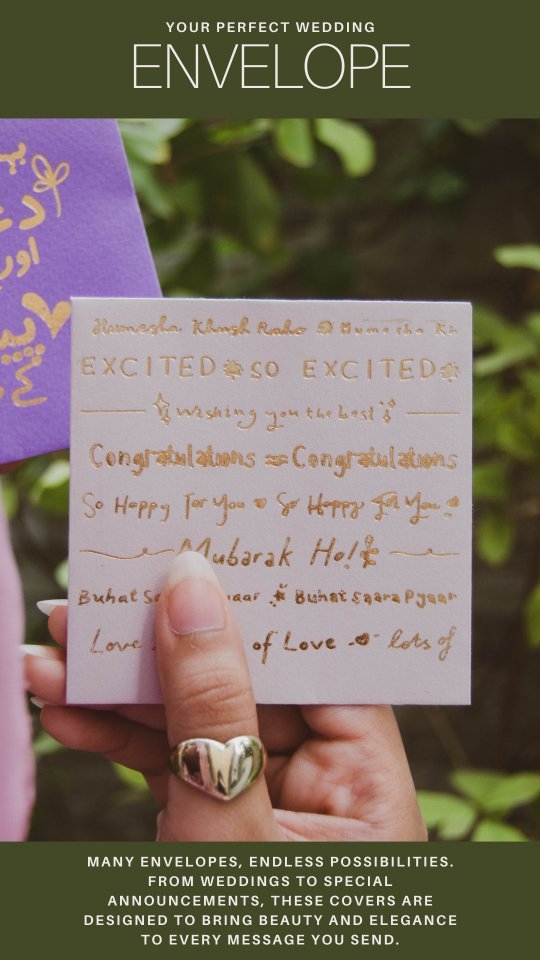 YOUR PERFECT WEDDING
ENVELOPE
دعا
اور
Humesha Khush Raho Humesha Kh
EXCITED SO EXCITED
Wishing you the best
Congratulations Congratulations
So Happy For You So Happy For You
Mubarak Ho!
Buhat Buhat Saara Pyaar
Love of Love lots of
MANY ENVELOPES, ENDLESS POSSIBILITIES.
FROM WEDDINGS TO SPECIAL
ANNOUNCEMENTS, THESE COVERS ARE
DESIGNED TO BRING BEAUTY AND ELEGANCE
TO EVERY MESSAGE YOU SEND.